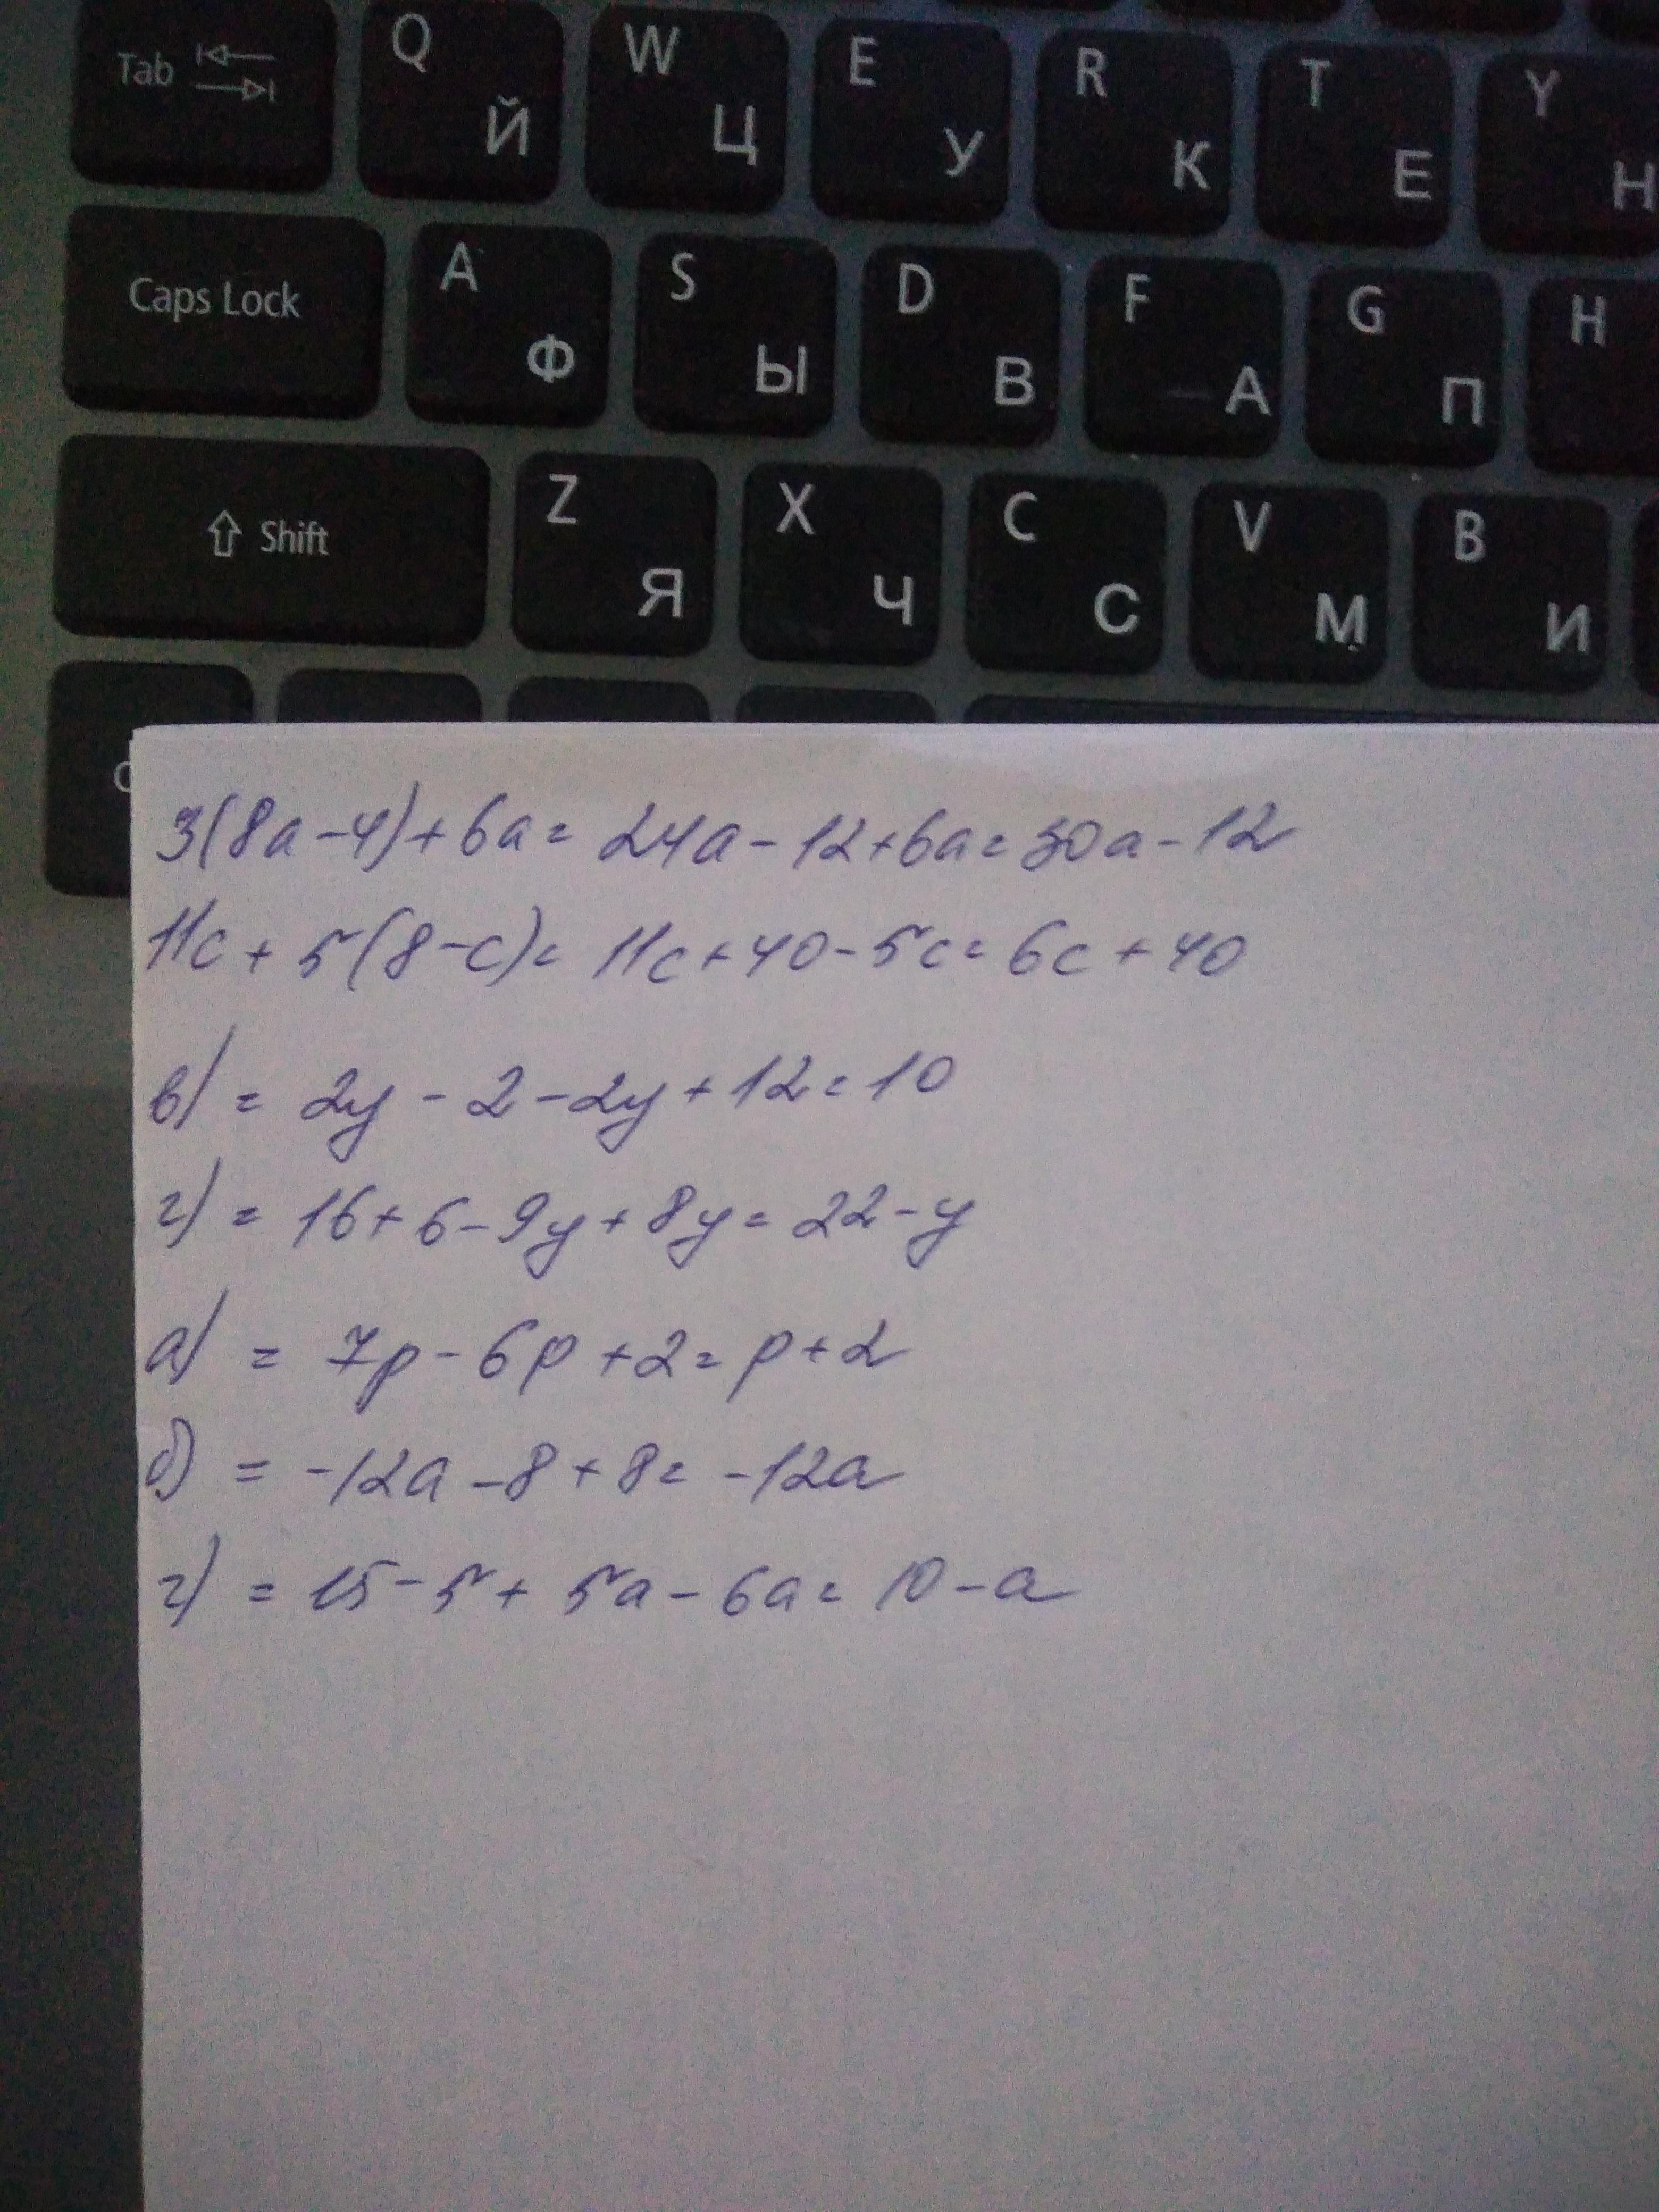 Tab Q Й W Ц E У R К T Е Y Н
Caps Lock A Ф S Ы D В F А G П H
Shift Z Я X Ч C С V М B И
3(8a-4)+6a= 24a-12+6a=30a-12
11c+5(8-c)= 11c+40-5c=6c+40
в) = 2y-2-2y+12=10
г) = 16+6-9y+8y=22-y
а) = 7p-6p+2=p+2
б) = -12a-8+8= -12a
г) = 15-5+5a-6a= 10-a